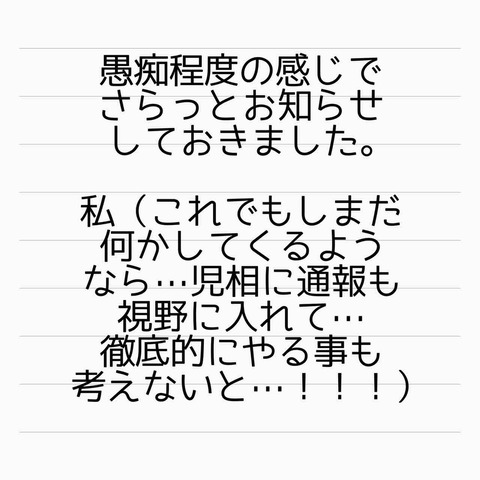 愚痴程度の感じで
さらっとお知らせ
しておきました。
私（これでもしまだ
何かしてくるよう
なら…児相に通報も
視野に入れて…
徹底的にやる事も
考えないと…！！！）